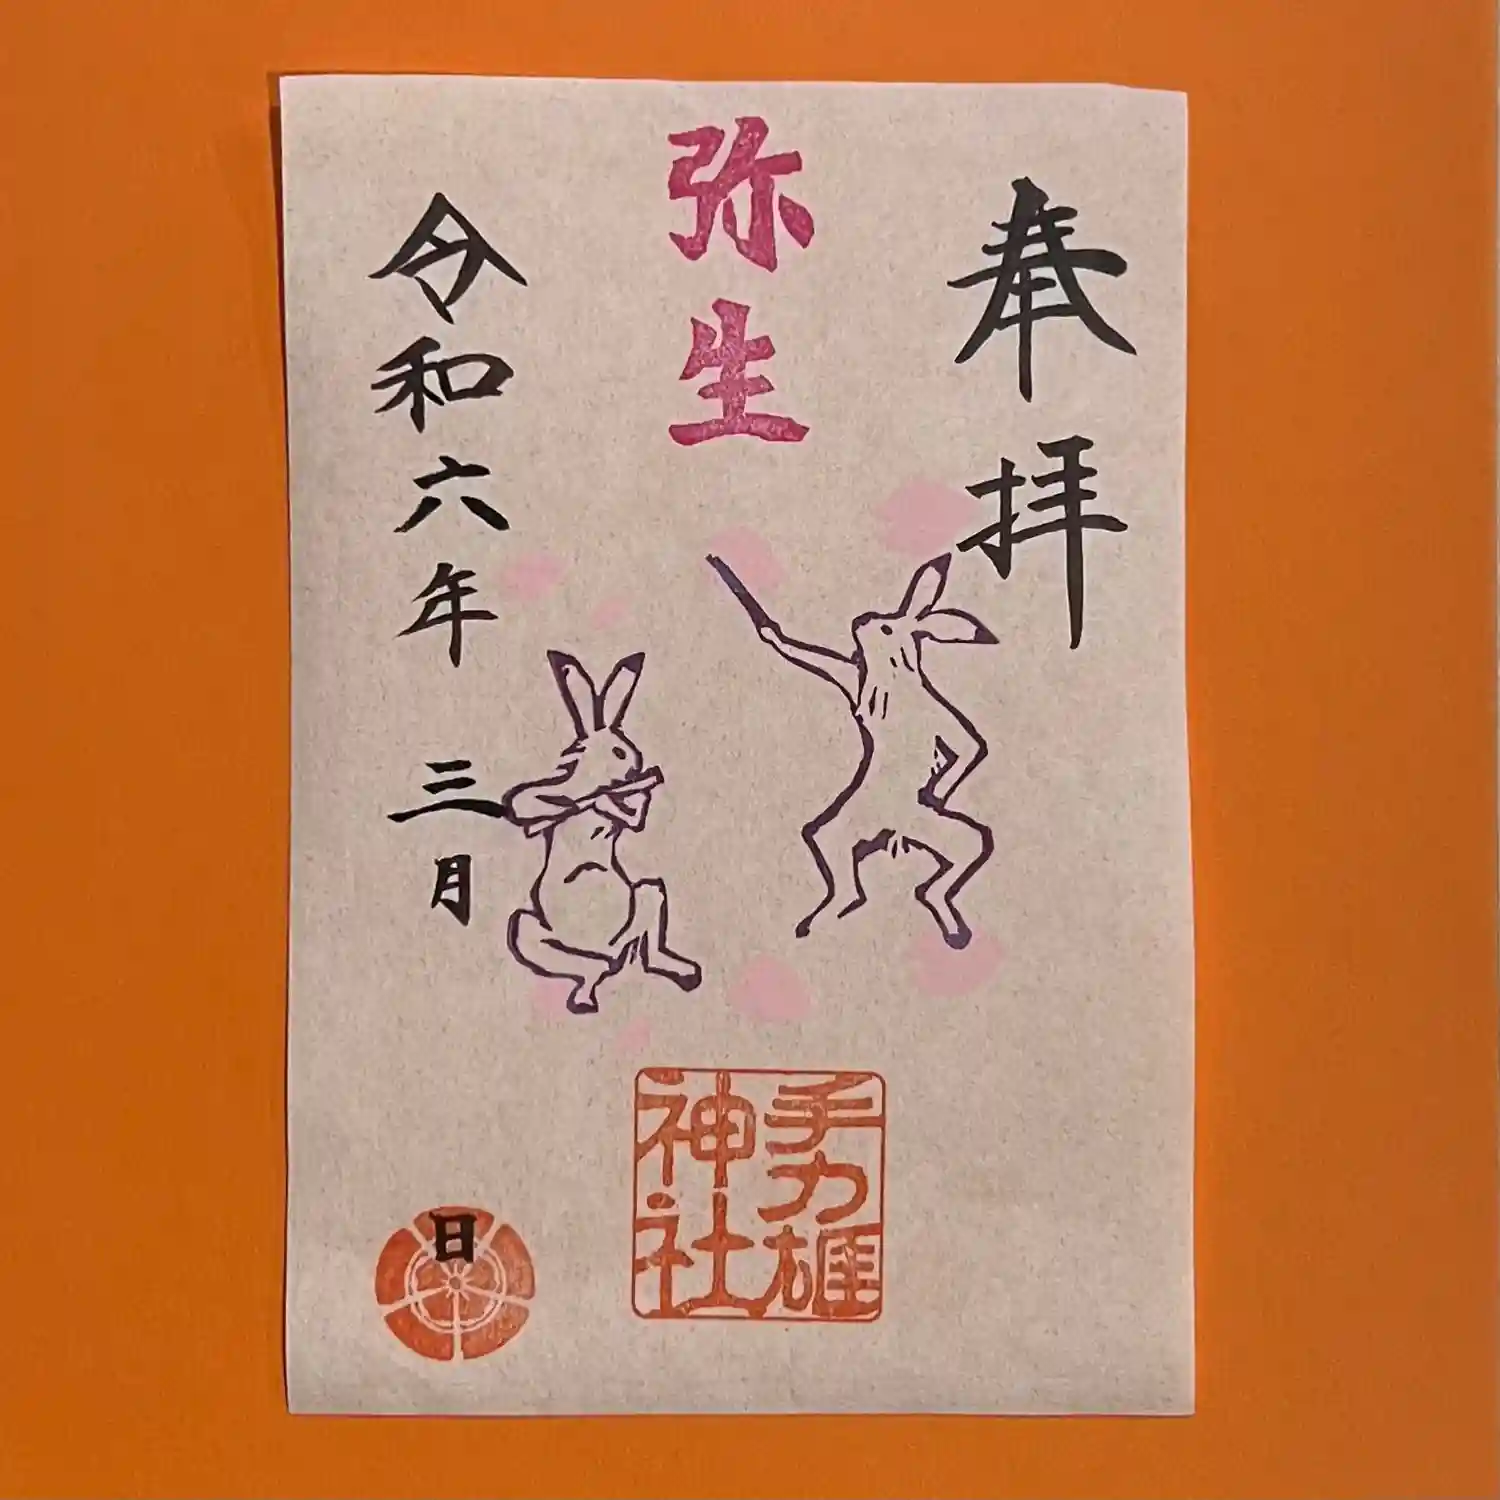 奉拝
弥生
手力雄
神社
令和六年 三月
日